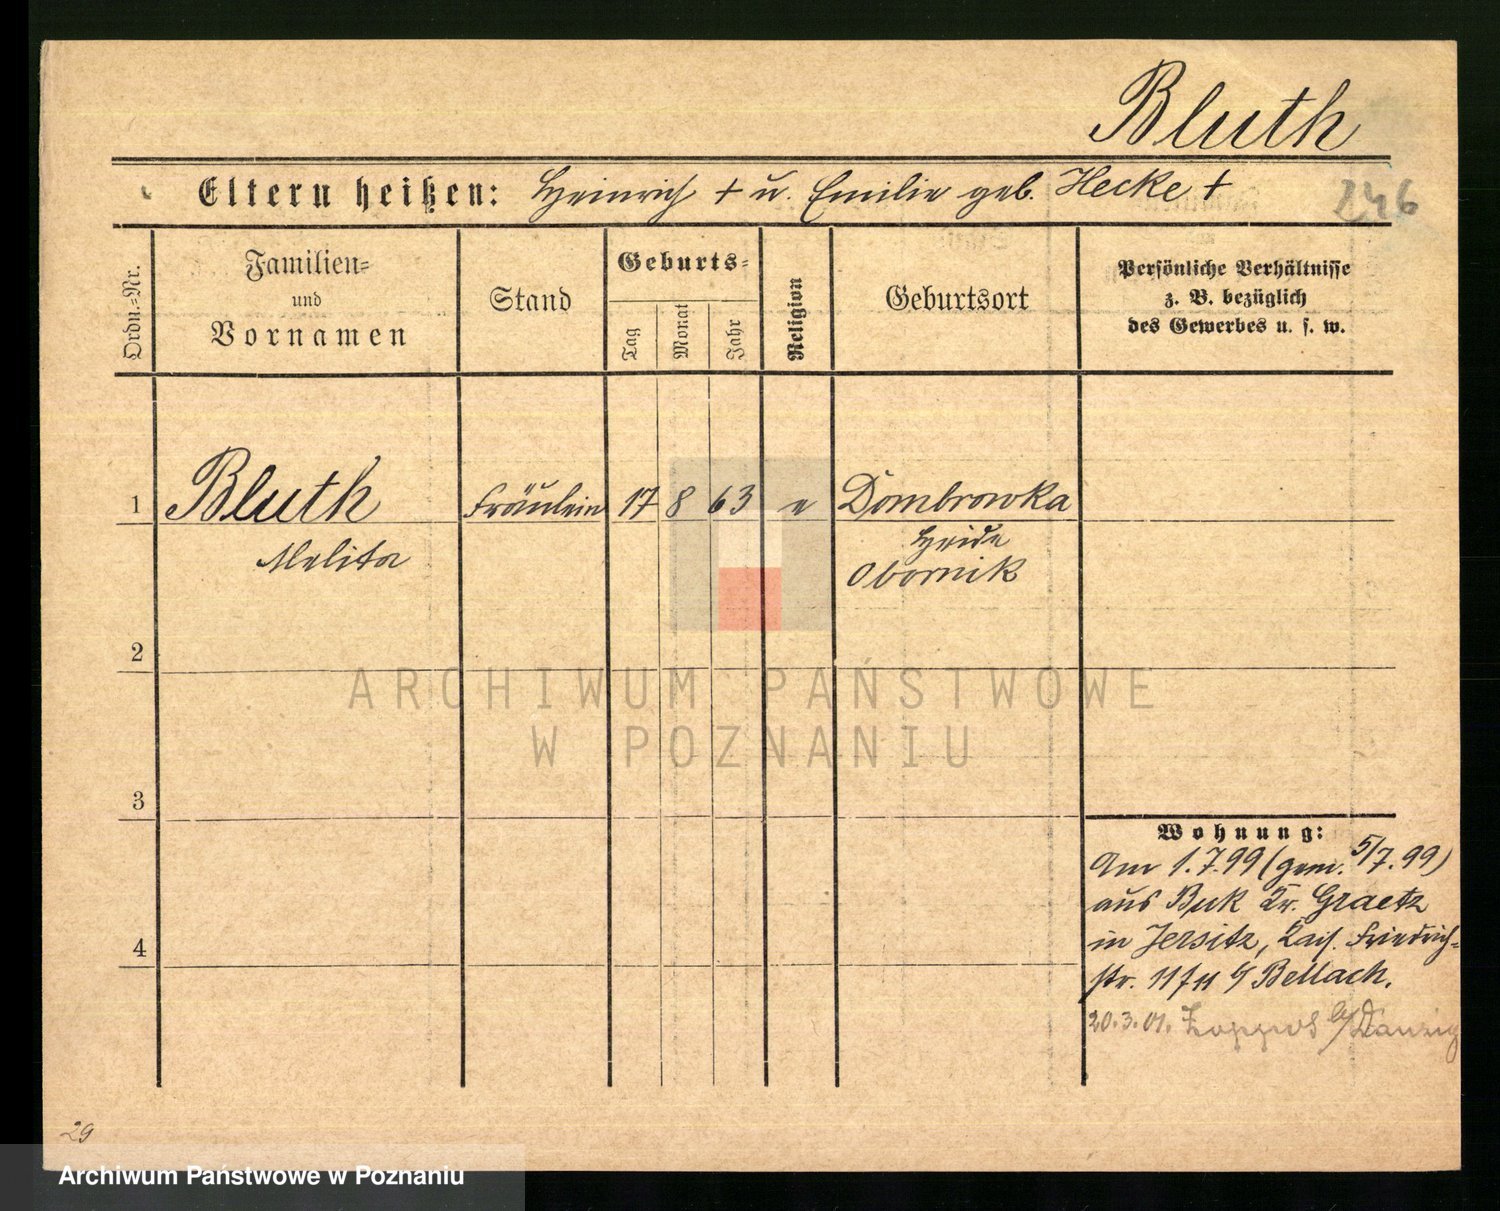 Bluth
Eltern heißen: Heinrich + u. Emilie geb. Hecke +
246
Ordn.-Nr.
Familien-
und
Vornamen
Stand
Geburts-
Tag
Monat
Jahr
Religion
Geburtsort
Persönliche Verhältnisse
z. B. bezüglich
des Gewerbes u. s. w.
1 Bluth Fräulein 17 8 63 e Dombrowka
Melita
Heide
Obornik
2
3
4
Wohnung:
Am 1.7.99 (gem. 5/7.99)
aus Buk Kr. Graetz
in Jersitz, Kais. Friedrich-
str. 11 f b/ Bellach.
20.3.01. Zoppot b/Danzig
29
ARCHIWUM PAŃSTWOWE
W POZNANIU
Archiwum Państwowe w Poznaniu